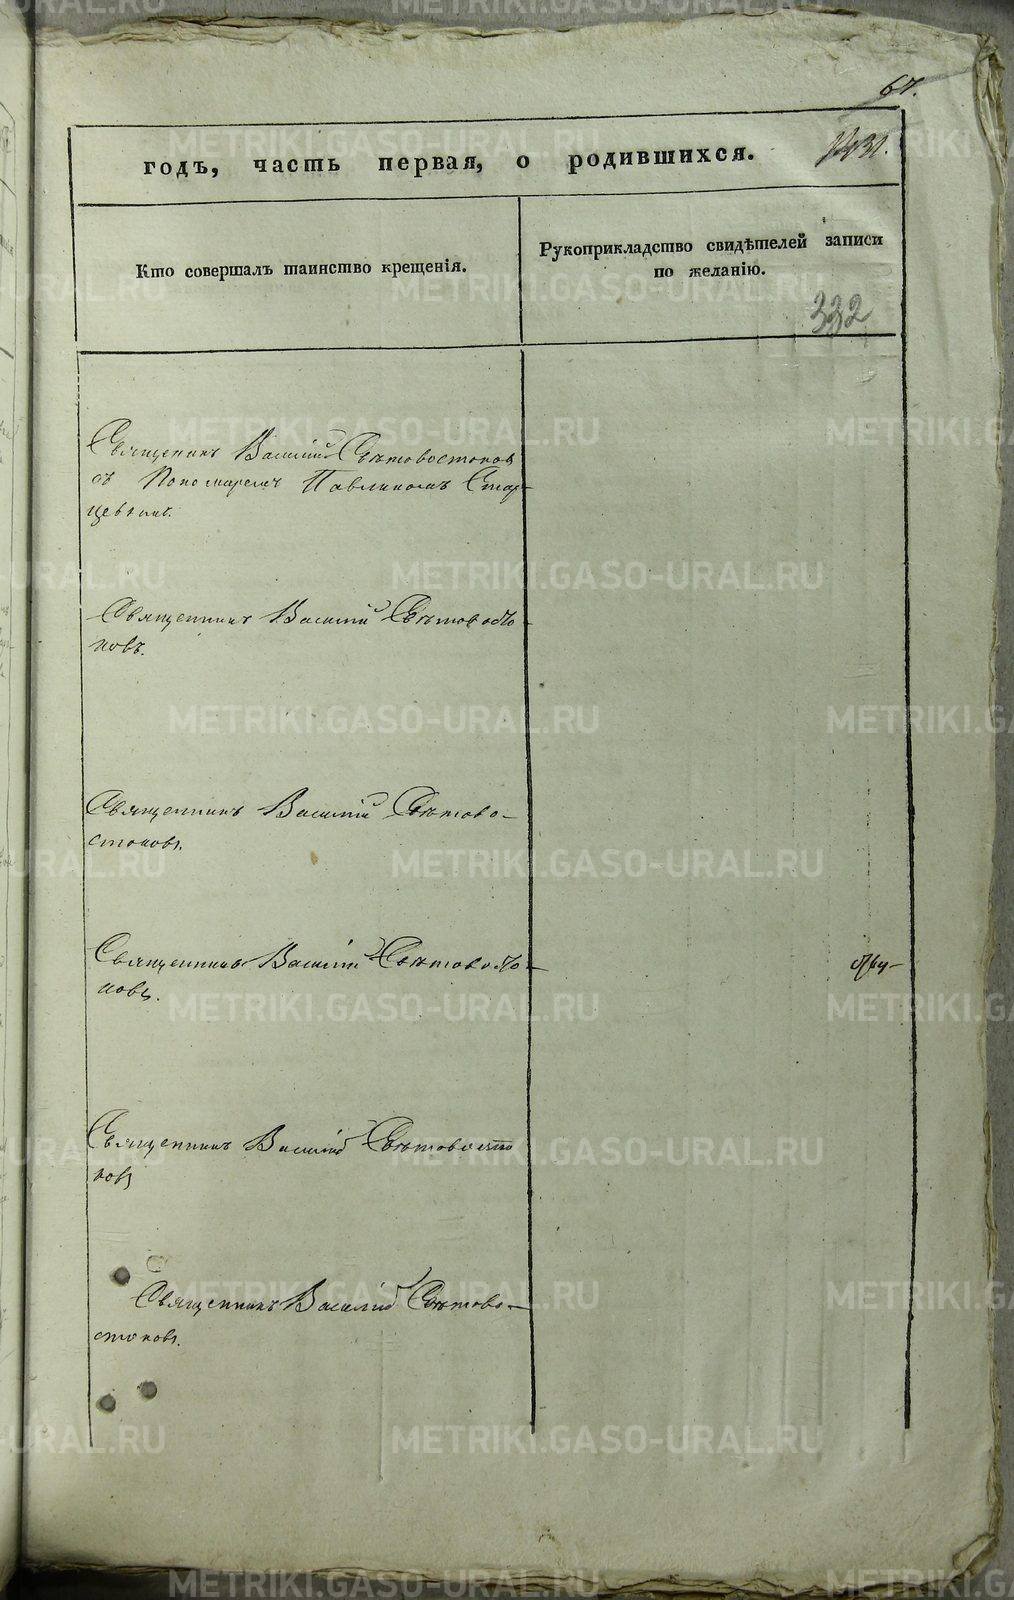 67.
годъ, часть первая, о родившихся.
Кто совершалъ таинство крещенія.
Рукоприкладство свидѣтелей записи
по желанію.
332
Священникъ Василій Свѣтовостоковъ
съ Пономаремъ Павлиномъ Стар-
цевымъ.
Священникъ Василій Свѣтовосто-
ковъ.
Священникъ Василій Свѣтово-
стоковъ.
Священникъ Василій Свѣтовосто-
ковъ.
Священникъ Василій Свѣтовосто
ковъ
Священникъ Василій Свѣтово-
стоковъ.
METRIKI.GASO-URAL.RU